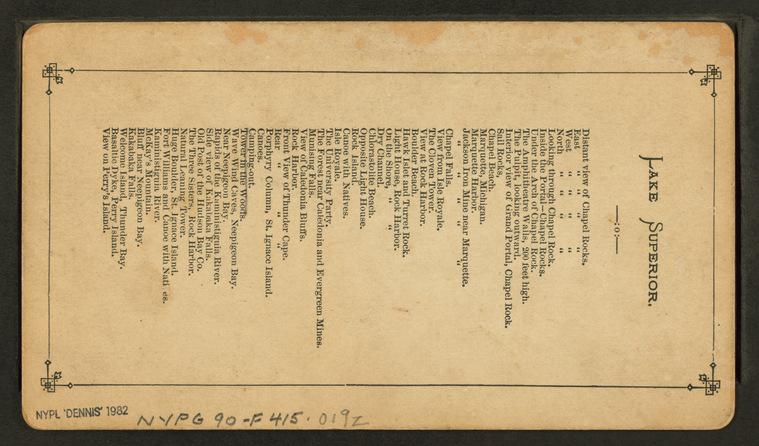 LAKE SUPERIOR.
—:o:—
Distant view of Chapel Rocks.
East " " " "
West " " " "
North " " " "
Looking through Chapel Rock.
Inside the Portal—Chapel Rocks.
Under the Arch of Chapel Rock.
The Amphitheatre Walls, 200 feet high.
The Pulpit, looking outward.
Interior view of Grand Portal, Chapel Rock.
Sail Rocks,
Chapel Beach.
Marquette, Michigan.
Marquette Harbor.
Jackson Iron Mine near Marquette.
" " " " "
Chapel Falls.
View from Isle Royale.
The Cloven Tower.
View at Rock Harbor.
Boulder Beach.
Hawk Islet and Turret Rock.
Light House, Rock Harbor.
On the Shore, " "
Dry Channel.
Chlorastolite Beach.
Opposite Light House.
Rock Islet.
Canoe with Natives.
Isle Royale.
The University Party.
The Forest near Caledonia and Evergreen Mines.
Munising Falls.
View of Caledonia Bluffs.
Rock Harbor.
Front View of Thunder Cape.
Rear " " " "
Porphyry Column, St. Ignace Island.
Canoes.
Camping-out.
Tower in the Woods.
Wave Wind Caves, Neepigeon Bay.
Near Neepigeon Bay.
Rapids of the Kaministiguia River.
Side view of Kakabaka Falls.
Old Post of the Hudson Bay Co.
The Three Sisters, Rock Harbor.
Natural Leaning Tower.
Huge Boulder, St. Ignace Island.
Fort Williams and Canoe with Nati es.
Kaministiquia River.
McKay's Mountain.
Bluff near Neepigeon Bay.
Kakabaka Falls.
Welcome Island, Thunder Bay.
Basaltic Dyke, Perry Island.
View on Perry's Island.
NYPL 'DENNIS' 1982
NYPG 90-F415. 019z